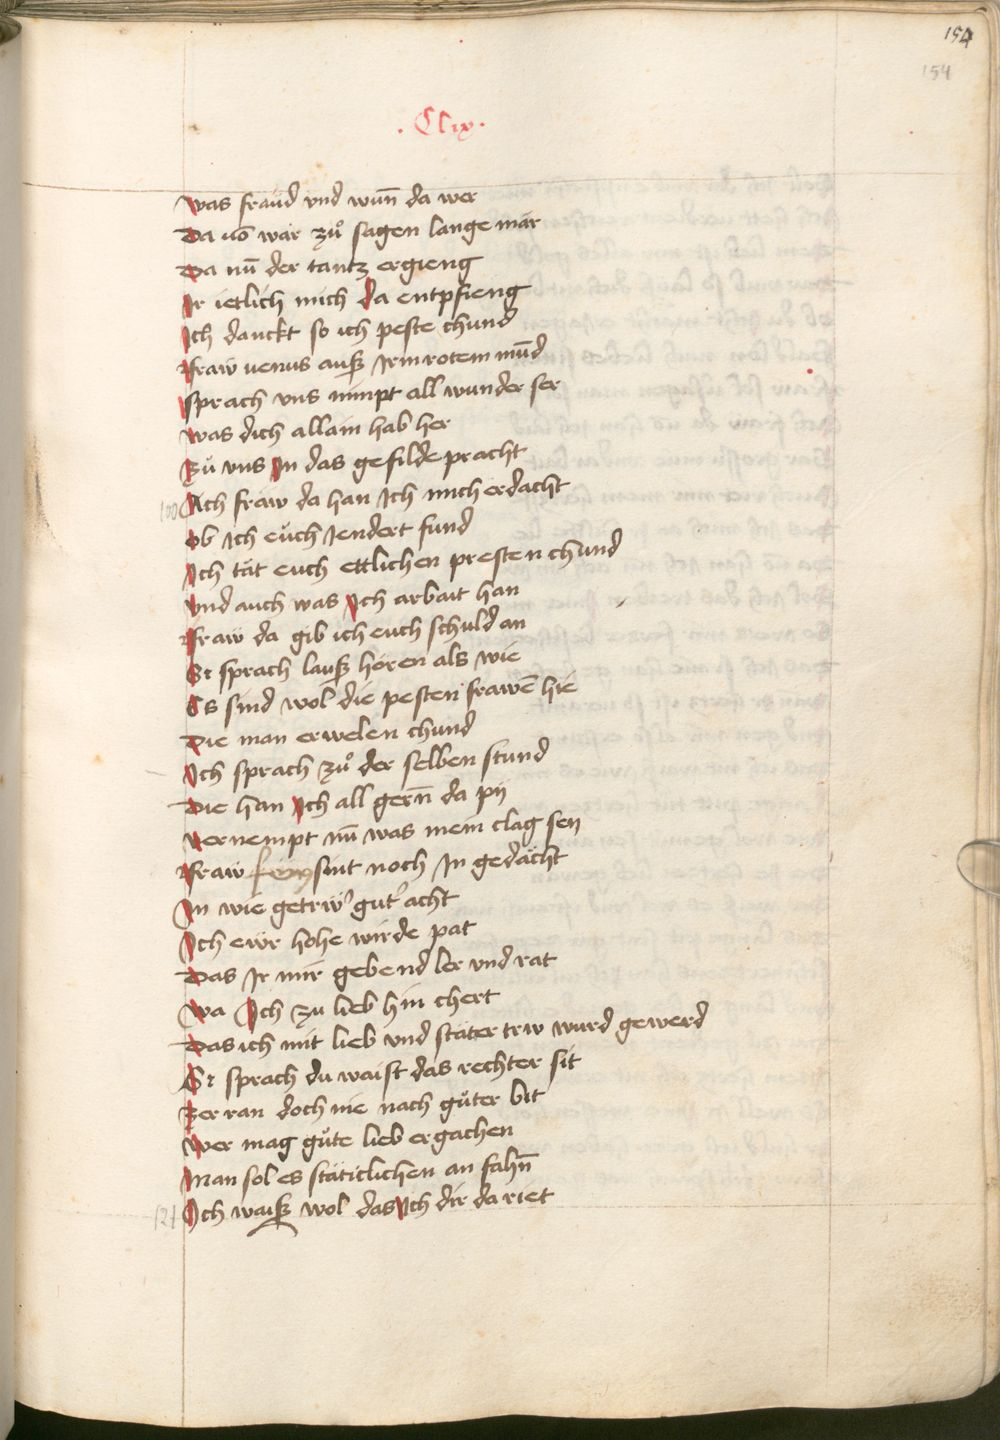 154
154
. Clix .
was fraüd vnd wun̄ da wer
Da uō wär zuͦ sagen lange mär
Da nū der tantz ergieng
Ir ietlich mich da entpfieng
Ich danckt so ich peste chund
Fraw uenus auß Irm rotem mūd
sprach vns nimpt all wunder ser
was dich allain hab her
Zuͦ vns In das gefilde pracht
100 Ach fraw da han Ich mich erdacht
ob Ich euͦch Iendert fund
Ich tät euch ettlichen presten chund
vnd auch was Ich arbait han
Fraw da gib ich euch schuld an
Si sprach lauß hören als wie
Es sind wol die pesten frawē hie
Die man erwelen chund
Ich sprach zuͦ der selben stund
Die han Ich all gern̄ da pij
vernempt nū was mein clag seij
Fraw sint noch In gedächt
In wie getrw gut acht
Ich ewr hohe wirde pat
Das Ir mir gebend ler vnd rat
wa Ich zu lieb hin chert
Das ich mit lieb vnd stäter trw wurd gewerd
Si sprach du waist das rechter sit
Zer ran doch nie nach guͦter bit
wer mag guͦte lieb ergachen
Man sol es stäticlichen an fahn̄
121 Ich waiß wol das Ich dir da riet